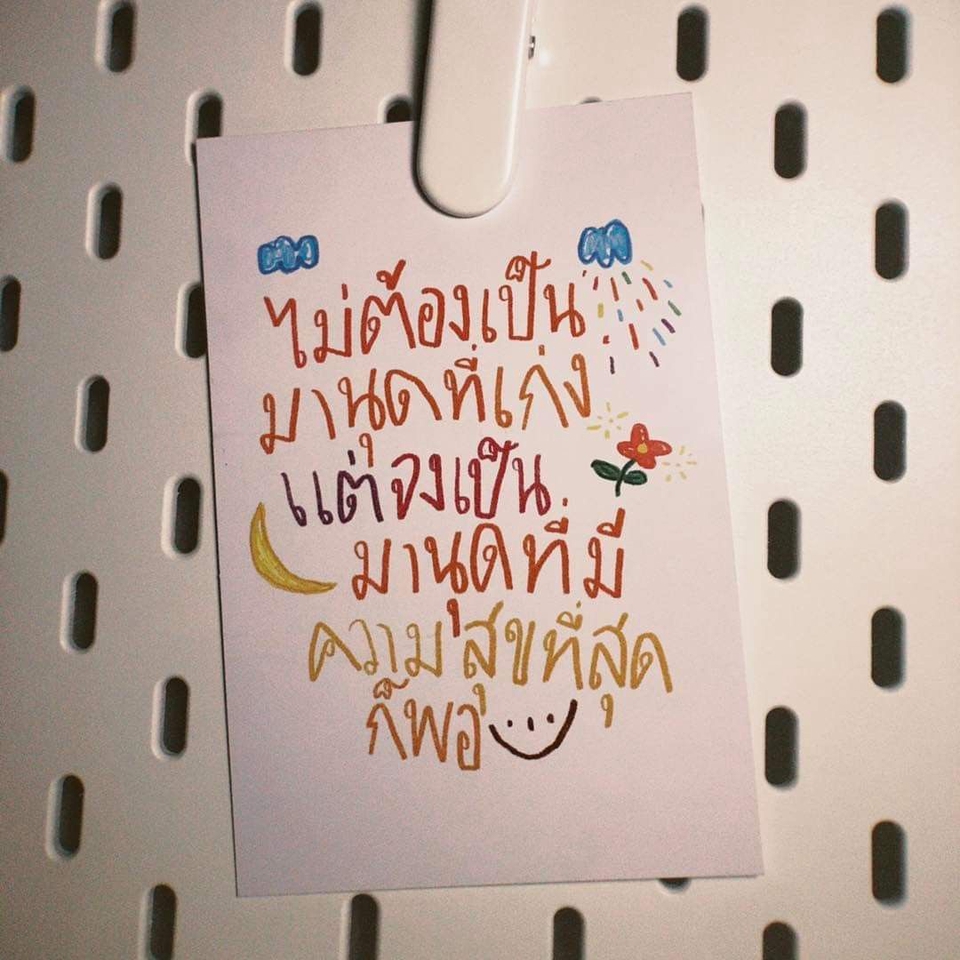 ไม่ต้องเป็น
มานุดที่เก่ง
แต่จงเป็น
มานุดที่มี
ความสุขที่สุด
ก็พอ